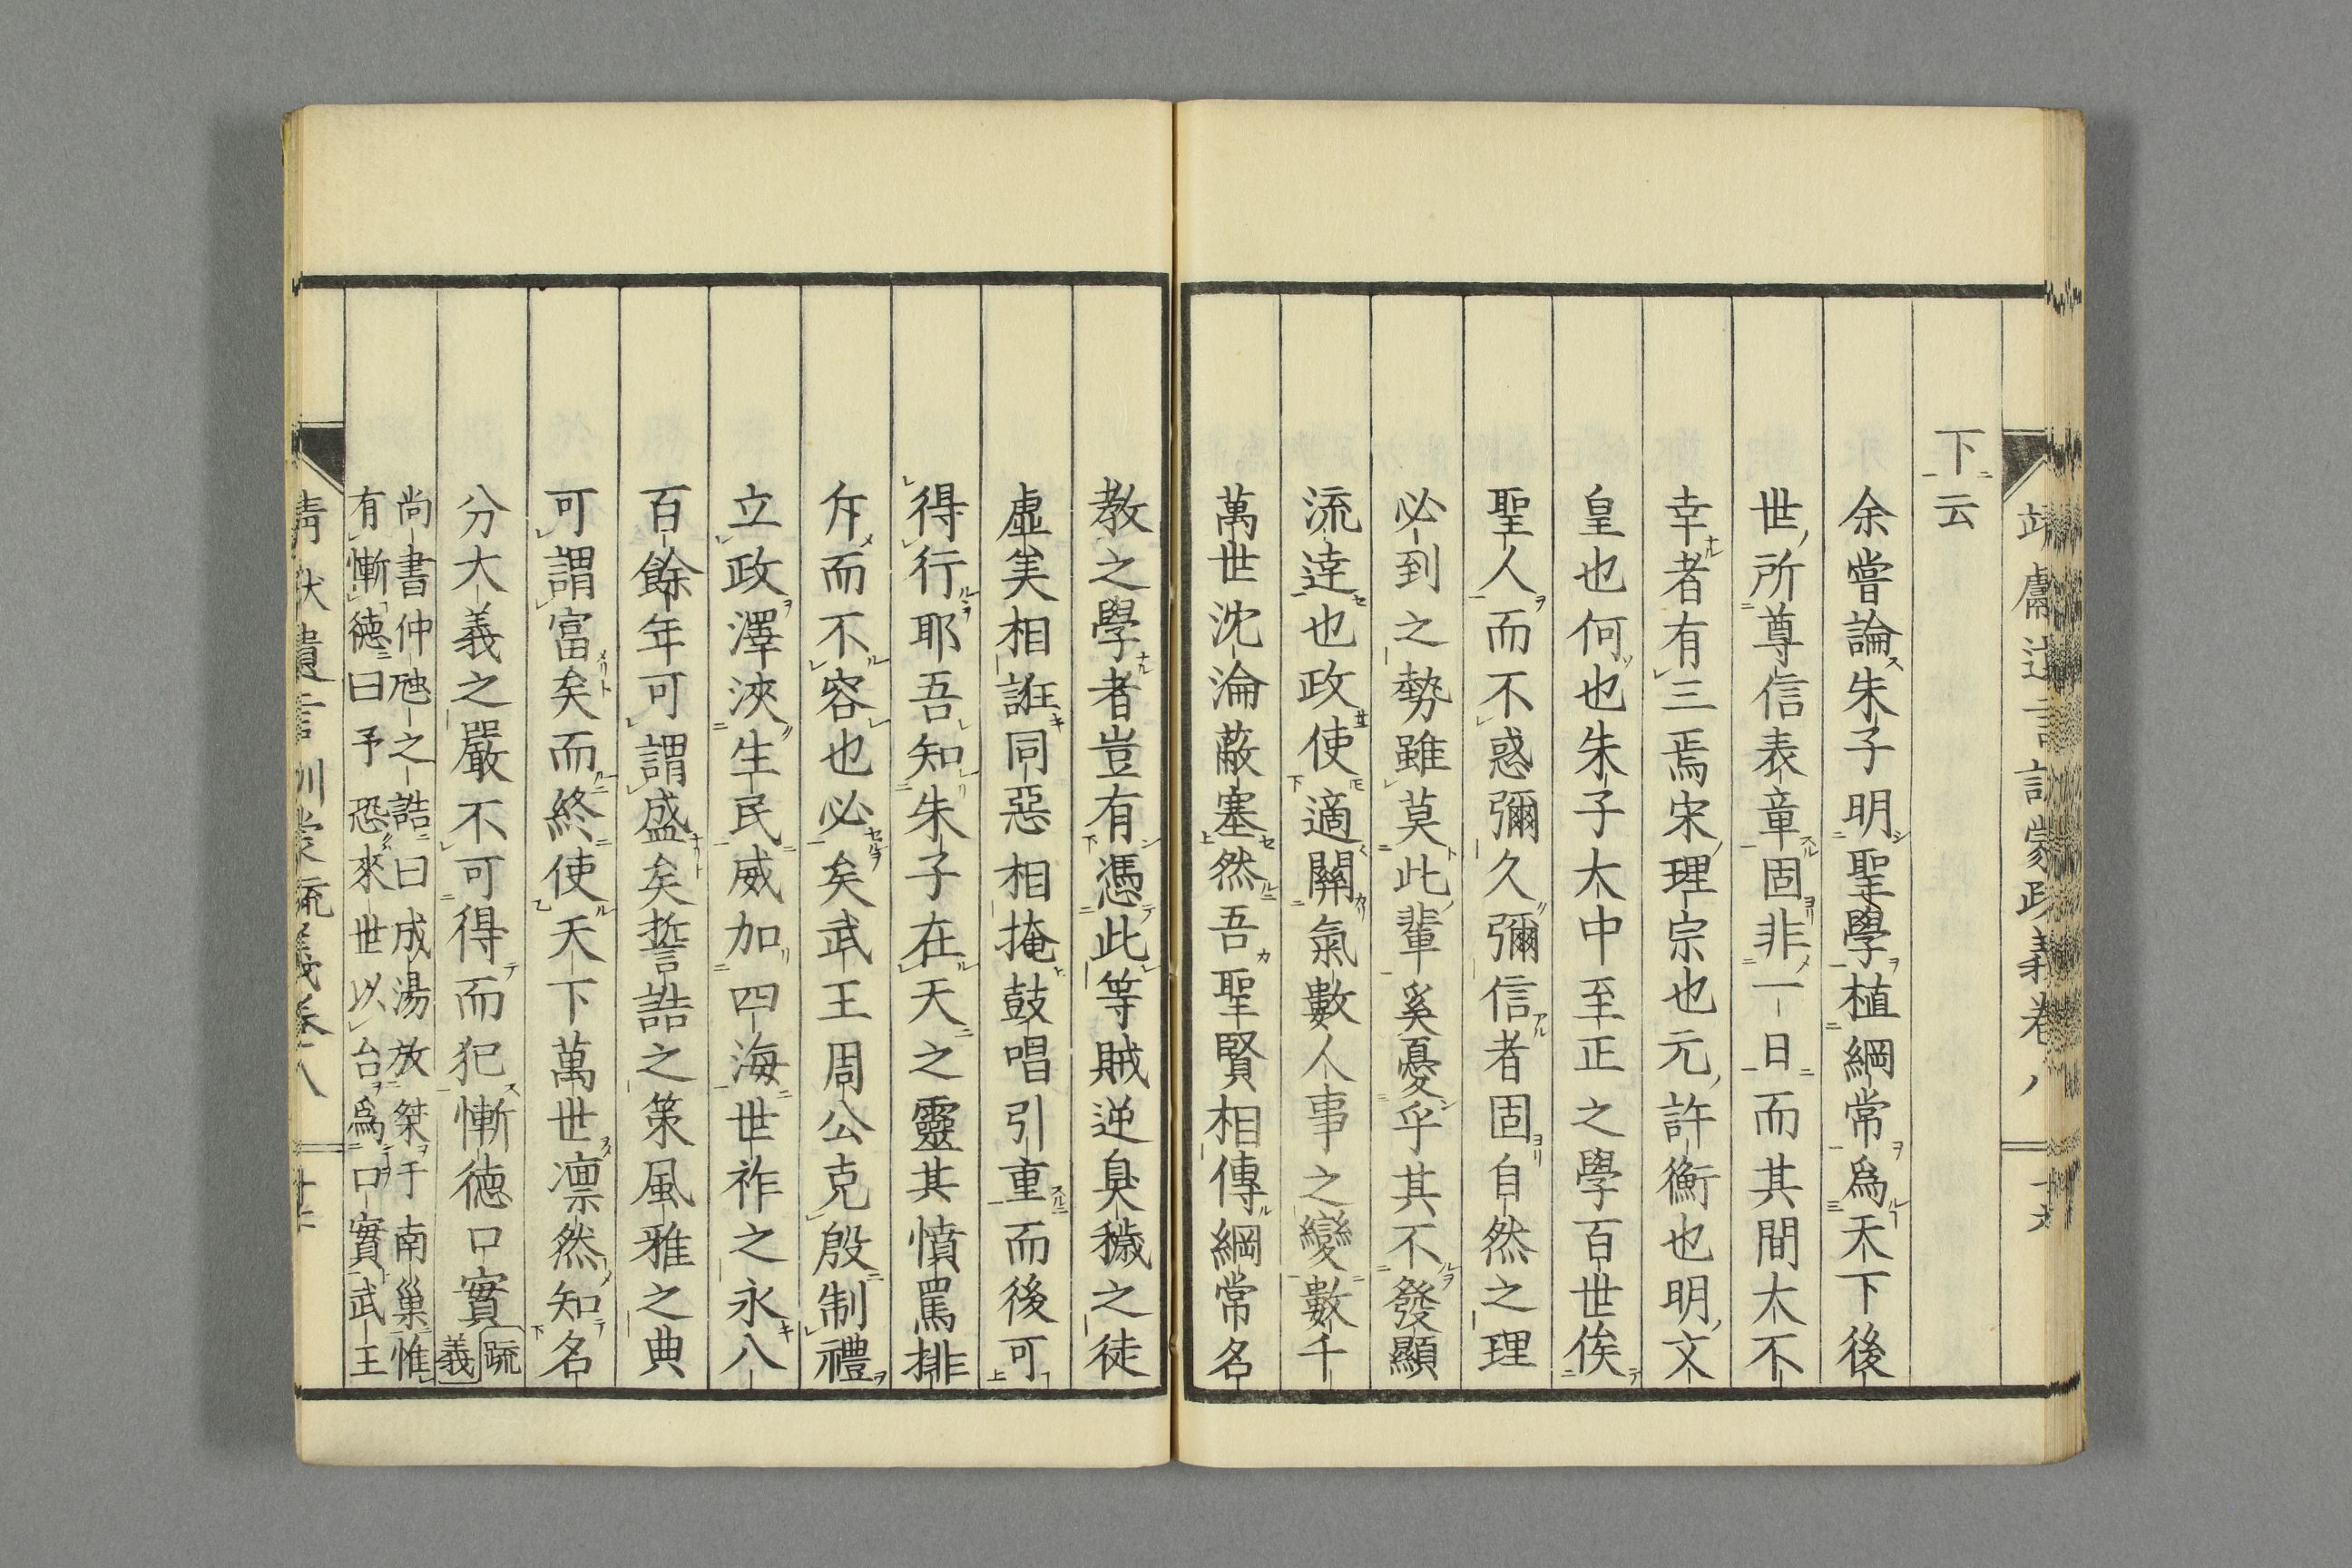 下云
余嘗論朱子明聖學植綱常爲天下後
世所尊信表章固非一日而其間大不
幸者有三焉宋理宗也元許衡也明文
皇也何也朱子大中至正之學百世俟
聖人而不惑彌久彌信者固自然之理
必到之勢雖莫此輩奚憂乎其不發顯
流達也政使適關氣數人事之變數千
萬世沈淪蔽塞然吾聖賢相傳綱常名
教之學者豈有憑此等賊逆臭穢之徒
虛美相誑同惡相掩鼓唱引重而後可
得行耶吾知朱子在天之靈其憤罵排
斥而不容也必矣武王周公克殷制禮
立政澤浹生民威加四海世祚之永八
百餘年可謂盛矣誓誥之策風雅之典
可謂富矣而終使天下萬世凛然知名
分大義之嚴不可得而犯慚德口實疏義
尚書仲虺之誥曰成湯放桀于南巢惟
有慚德曰予恐來世以台爲口實武王
靖獻遺言訓蒙疏義卷八